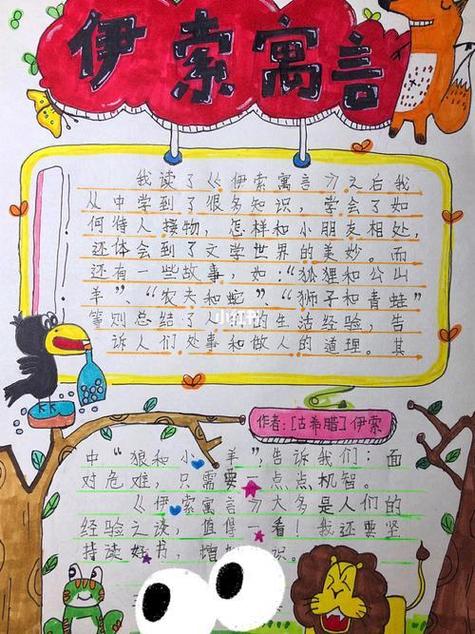 伊索寓言
我读了《伊索寓言》之后我
从中学到了很多知识，学会了如
何待人接物，怎样和小朋友相处，
还体会到了文学世界的美妙。而
还有一些故事，如：“狐狸和公山
羊”、“农夫和蛇”、“狮子和青蛙”
等则总结了人们的生活经验，告
诉人们处事和做人的道理。其
作者：[古希腊]伊索
中“狼和小羊”，告诉我们：面
对危难，只需要一点点机智。
《伊索寓言》大多是人们的
经验之谈，值得一看！我还要坚
持读好书，增加 识。